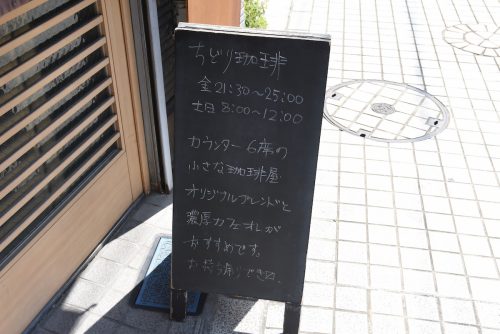 ちどり珈琲
金 21:30〜25:00
土日 8:00〜12:00
カウンター6席の
小さな珈琲屋
オリジナルブレンドと
濃厚カフェオレが
おすすめです。
お持ち帰りできます。